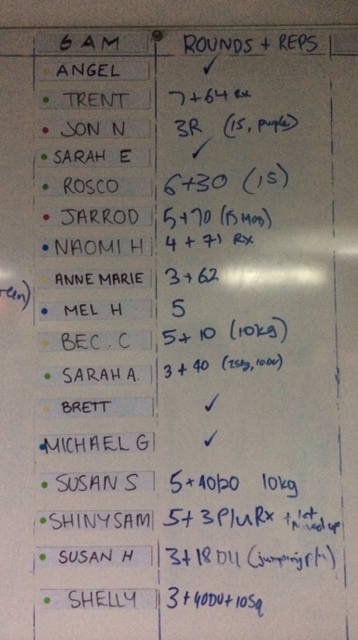 6 AM ROUNDS + REPS
ANGEL ✓
TRENT 7+64 Rx
JON N 3R (15, purple)
SARAH E ✓
ROSCO 6+30 (15)
JARROD 5+70
NAOMI H 4+71 RX
ANNE MARIE 3+62
MEL H 5
BEC.C 5+10 (10kg)
SARAH A. 3+40
BRETT ✓
MICHAEL G ✓
SUSAN S 5+40/20 10kg
SHINY SAM 5+3 P/u Rx
SUSAN H 3+18 DU
SHELLY 3+40DU+10Sq